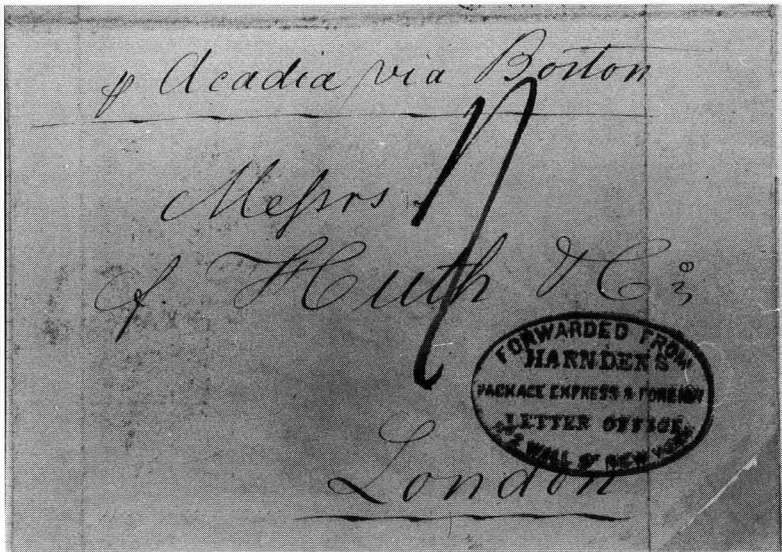 ℘ Acadia via Boston
Messrs
F. Huth & Co
London
FORWARDED FROM
HARNDEN'S
PACKAGE EXPRESS & FOREIGN
LETTER OFFICE
WALL ST NEW YORK